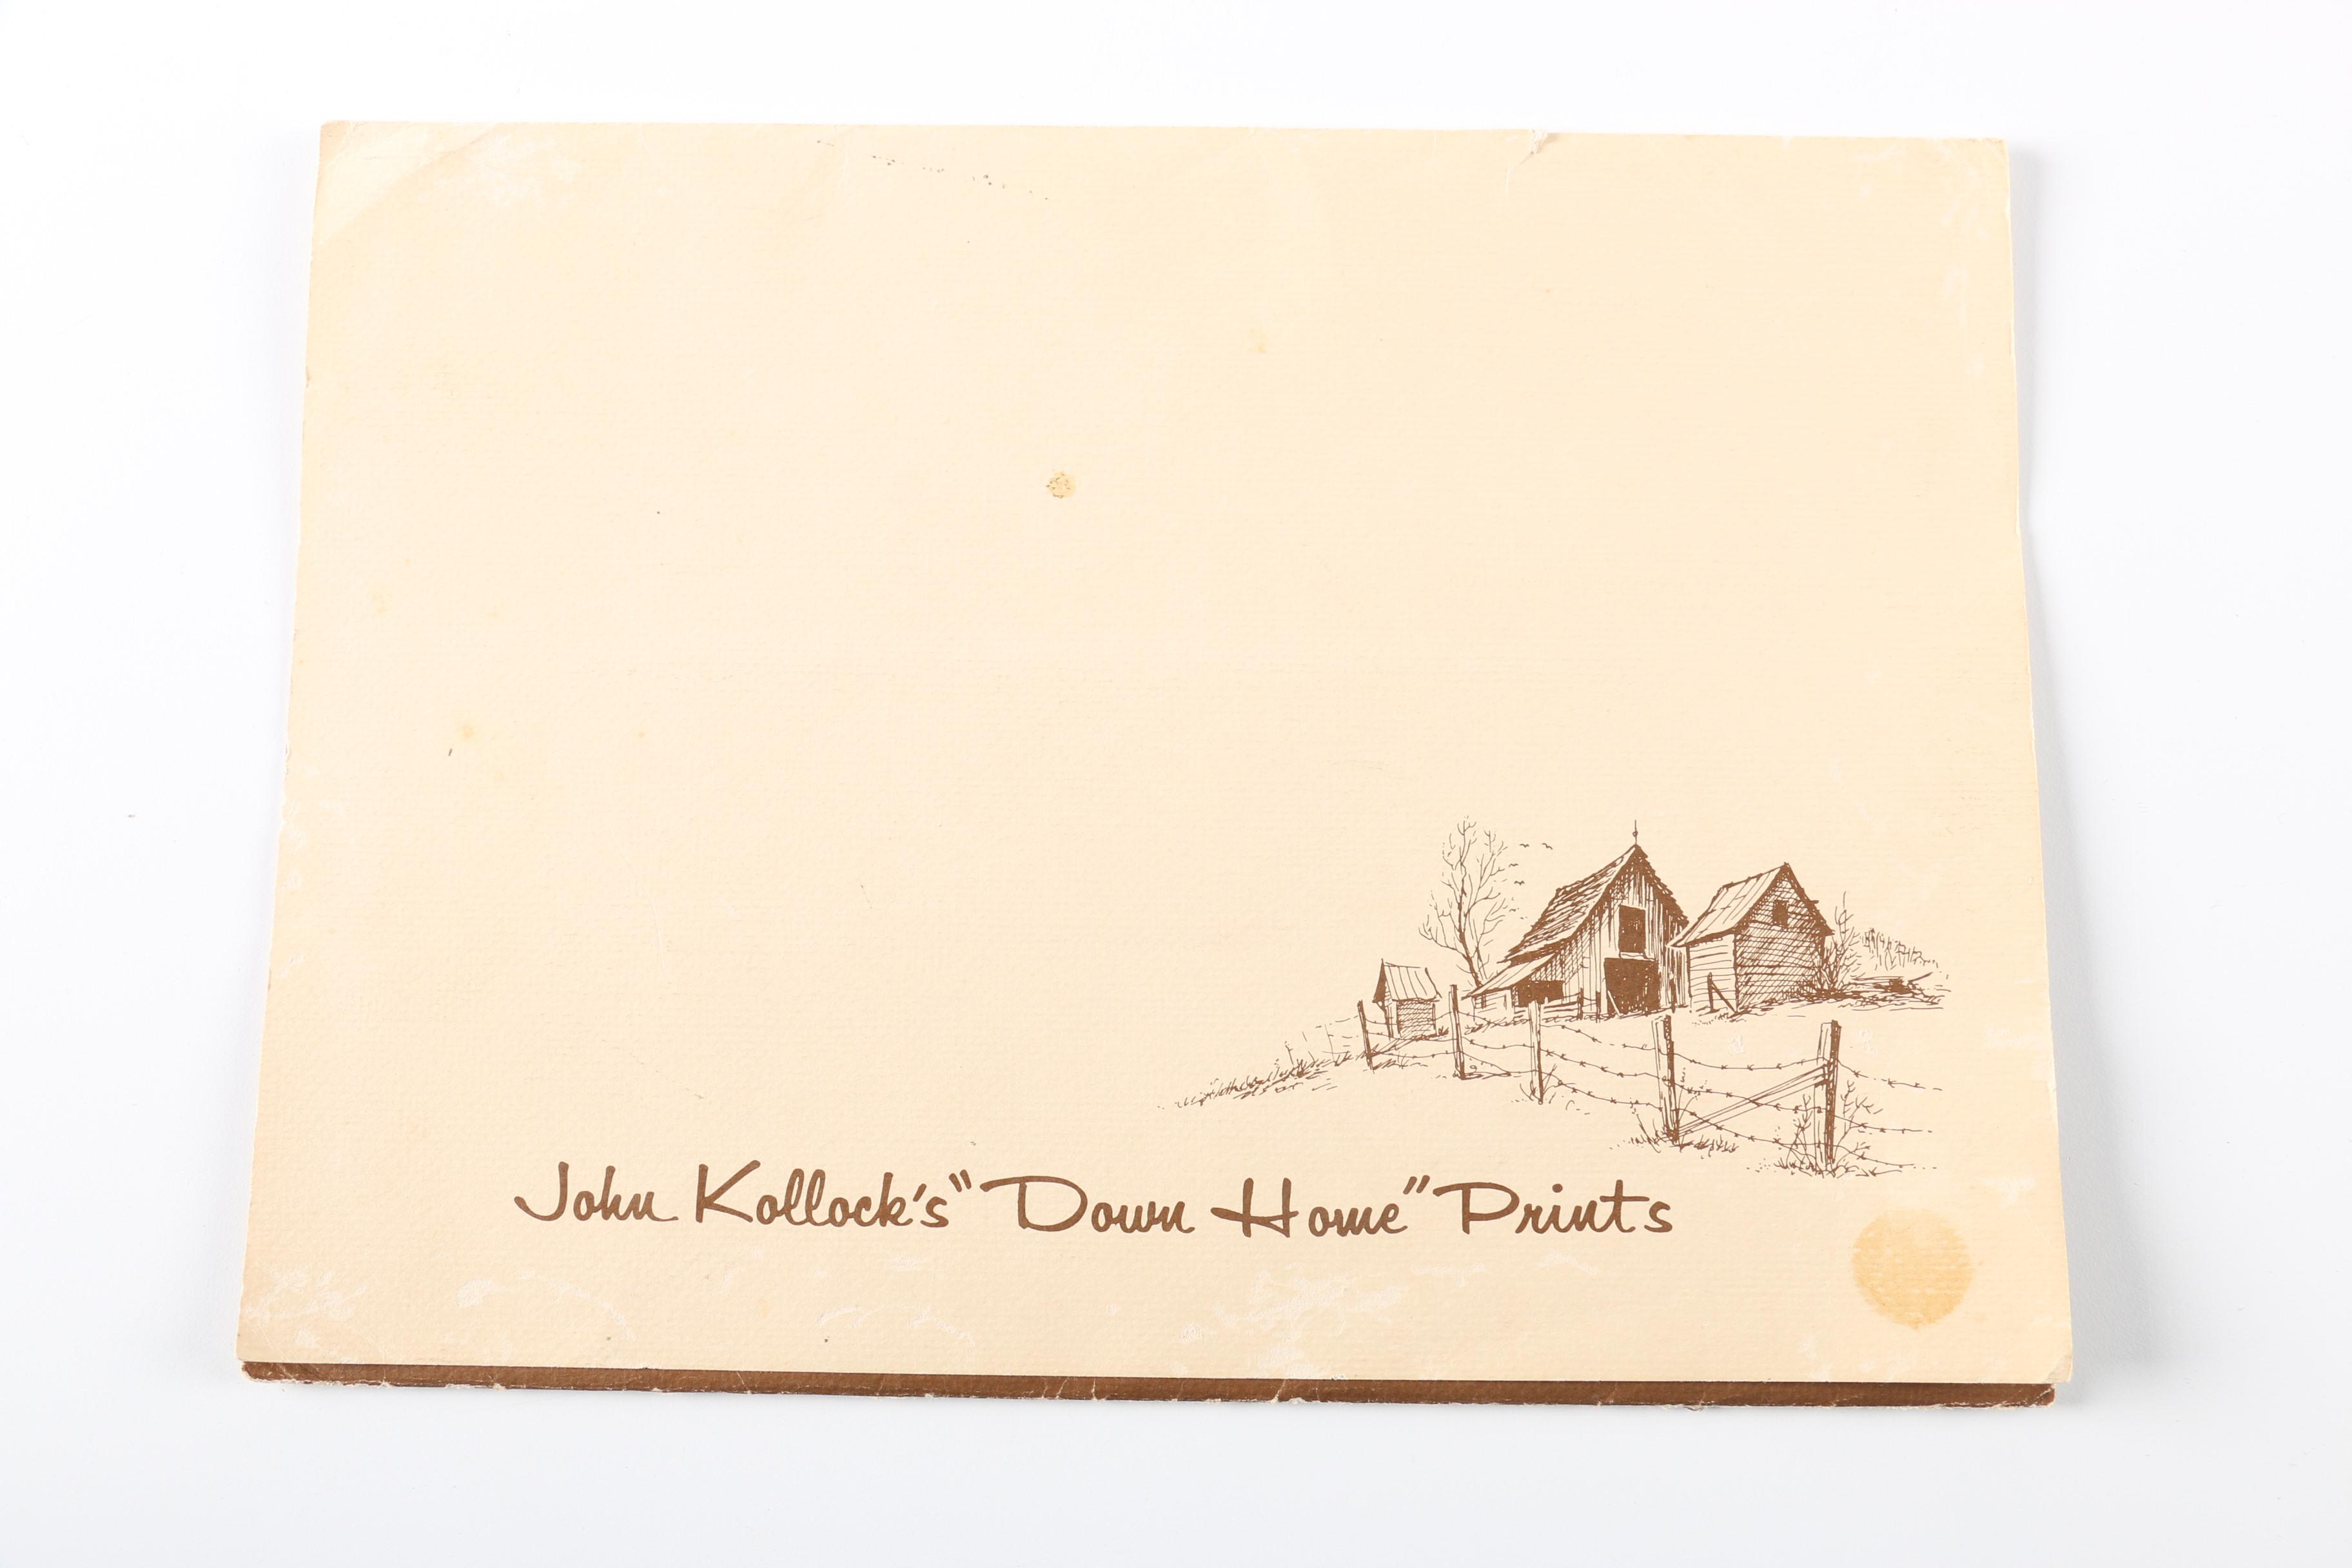 John Kollock's "Down Home" Prints